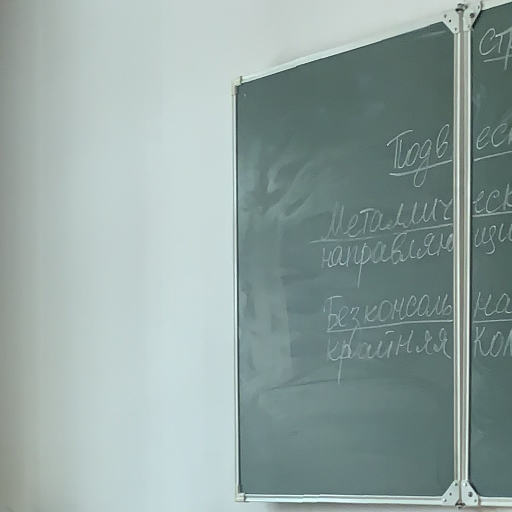 Ст
Подвес
Металлическ
направляющи
Безконсольна
крайняя кол